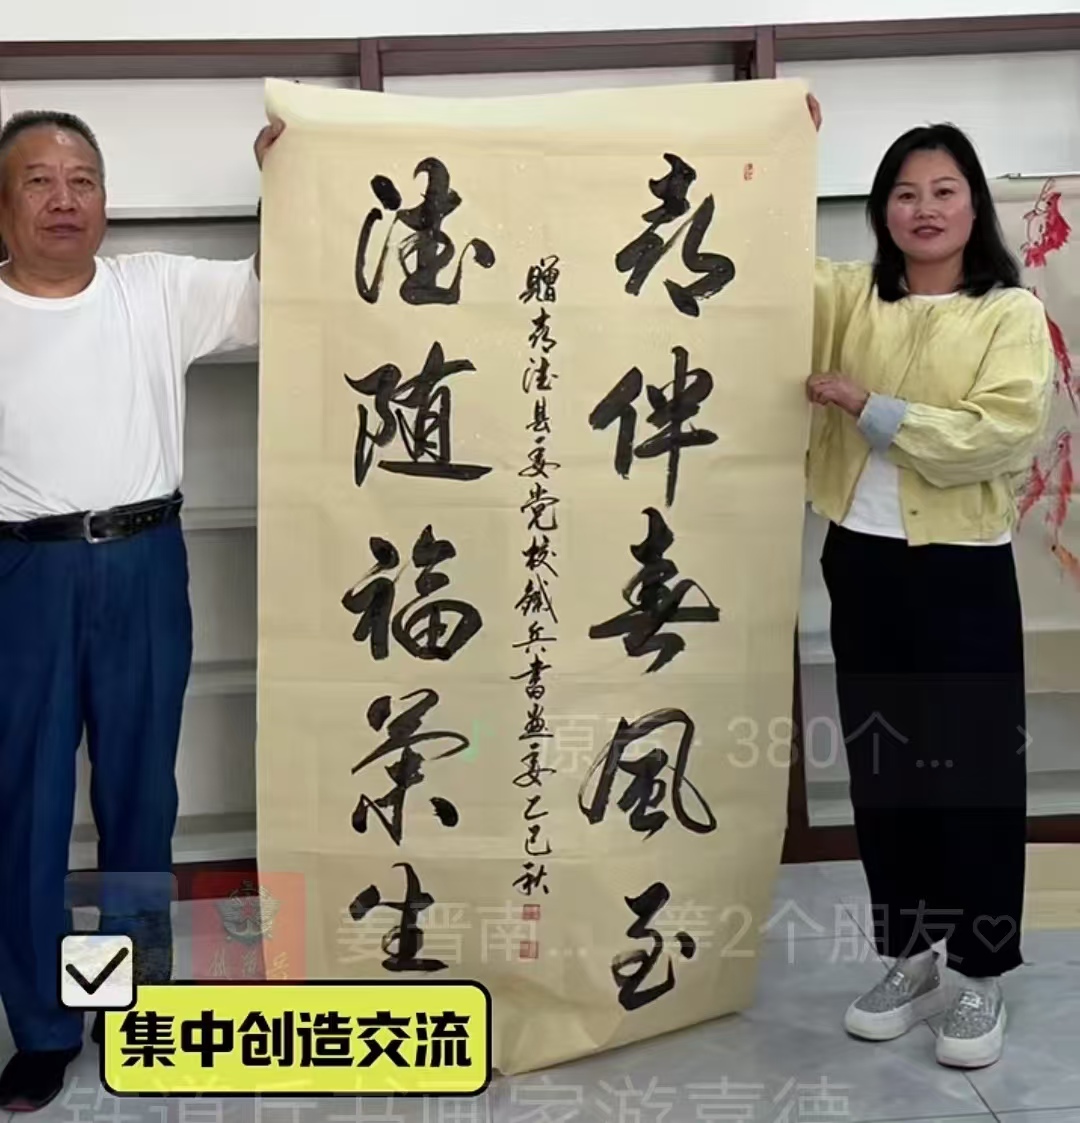 伴春風至
德随福荣生
贈 德县委党校鐵兵書画委乙巳秋
原声 · 380个...
姜晋南... 等2个朋友♡
集中创造交流
铁道兵书画家游嘉德